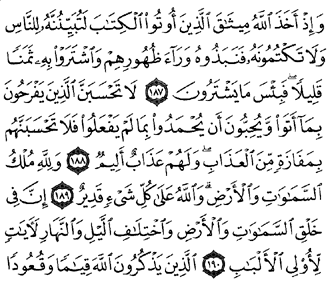 وَإِذْ أَخَذَ ٱللَّهُ مِيثَٰقَ ٱلَّذِينَ أُوتُوا۟ ٱلْكِتَٰبَ لَتُبَيِّنُنَّهُۥ لِلنَّاسِ
وَلَا تَكْتُمُونَهُۥ فَنَبَذُوهُ وَرَآءَ ظُهُورِهِمْ وَٱشْتَرَوْا۟ بِهِۦ ثَمَنًا
قَلِيلًا ۖ فَبِئْسَ مَا يَشْتَرُونَ ١٨٧ لَا تَحْسَبَنَّ ٱلَّذِينَ يَفْرَحُونَ
بِمَآ أَتَوا۟ وَّيُحِبُّونَ أَن يُحْمَدُوا۟ بِمَا لَمْ يَفْعَلُوا۟ فَلَا تَحْسَبَنَّهُم
بِمَفَازَةٍ مِّنَ ٱلْعَذَابِ ۖ وَلَهُمْ عَذَابٌ أَلِيمٌ ١٨٨ وَلِلَّهِ مُلْكُ
ٱلسَّمَٰوَٰتِ وَٱلْأَرْضِ ۗ وَٱللَّهُ عَلَىٰ كُلِّ شَىْءٍ قَدِيرٌ ١٨٩ إِنَّ فِى
خَلْقِ ٱلسَّمَٰوَٰتِ وَٱلْأَرْضِ وَٱخْتِلَٰفِ ٱلَّيْلِ وَٱلنَّهَارِ لَءَايَٰتٍ
لِّأُو۟لِى ٱلْأَلْبَٰبِ ١٩٠ ٱلَّذِينَ يَذْكُرُونَ ٱللَّهَ قِيَٰمًا وَقُعُودًا